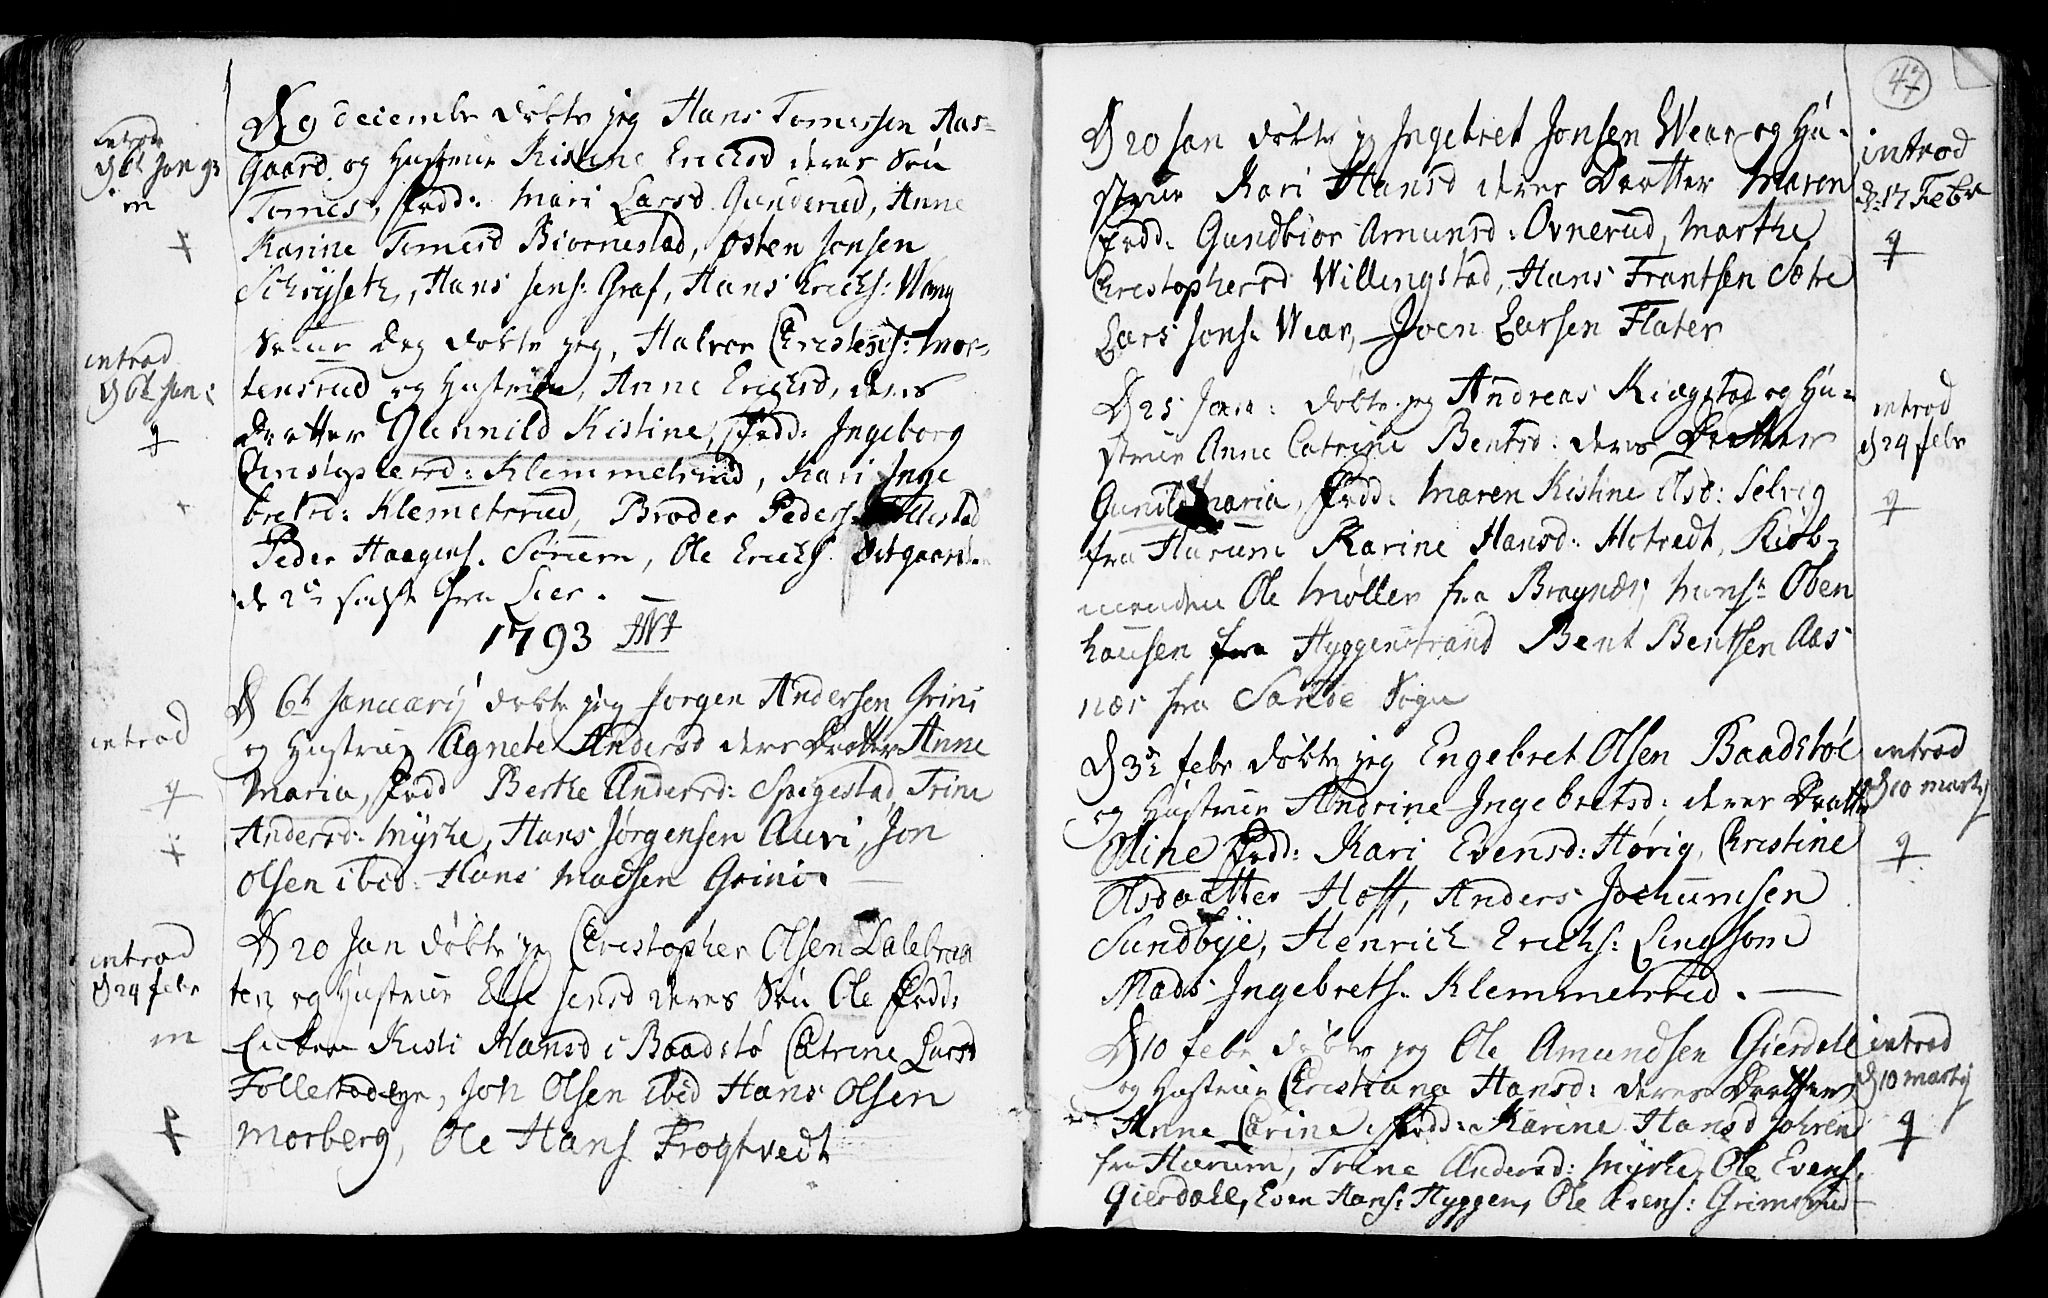 introd
D 6t Jan 93
m
D 9 decembr döbte jeg Hans Tomessen Aas-
Gaard og Hustrue Kistine Ericksd deres Sön
Tomes, Fadd: Mari Larsd Gunderud, Anne
Karine Tomesd Biornestad, Osten Jonsen
Schrÿseth, Hans Jens: Graf, Hans Ericks: Wang
introd
D 6t Jan:
Samme Dag döbte jeg, Halvor Christens: Mor-
tensrud og Hustrue, Anne Ericksd, deres
Daatter Gunnild Kistine, Fadd: Ingeborg
Christophersd: Klemmetsrud, Kari Inge
bretsd: Klemetsrud, Broder Peders: Follestad
Peder Haagens. Sörum, Ole Ericks.
de 2de sidste fra Lier.
1793
introd
D 6t Januarij döbte jeg Jorgen Andersen Grini
og Hustrue Agnete Andersd deres Daatter Anne
Maria, Fadd Berthe Andersd: Spigestad, Trine
Andersd: Myrhe, Hans Jørgensen Auvi, Jon
Olsen ibid: Hans Madsen Grini.
introd
D 24 febr
m
D 20 Jan döbte jeg Christopher Olsen Lalebraa
ten og Hustrue Else Jensd deres Sön Ole Fadd:
Kisti Hansd i Baadstö Catrine Larsd
Follestadeye, Joh Olsen ibid Hans Olsen
Morberg, Ole Hans Frogtvedt
47
introd
D: 17 Febr
D 20 Jan döbte jeg Ingebret Jonsen Wear og Hu-
strue Kari Hansd deres Daatter Maren
Fadd: Gundbior Amunsd: Ovnerud, Marthe
Christophersd Willingstad, Hans Frantsen Sætre
Lars Jons: Wear, Joen Larsen Flater
introd
D 24 febr
D 25 Jan: döbte jeg Andreas Kiægstad og Hu-
strue Anne Catrine Bentsd: deres Daatter
Gunild Maria, Fadd: Maren Kistine Olsd: Selvig
fra Hurum Karine Hansd: Hotvedt, Kiöb-
manden Ole Møller fra Bragnæs, Mons: Oben
hausen fra Hyggenstrand Bent Bentsen Aas
næs fra Sande Sogn
introd
D 10 martij
D 3de febr döbte jeg Engebret Olsen Baadstöe
og Hustrue Andrine Ingebretsd: deres Daatter
Oline Fadd: Kari Evensd: Hørig, Christine
Olsdaatter Hoff, Anders Jochumsen
Sundbÿe, Henrich Ericks: Lingsom
Mads Ingebrets. Klemmetsrud.
introd
D 10 martij
D 10 febr döbte jeg Ole Amundsen Gierdall
og Hustrue Christiana Hansd: deres Daatter
Anne Carine, Fadd: Karine Hansd Johren
fra Hurum, Trine Andersd: Myrhe, Ole Evens.
Gierdall, Even Hans: Hyggen, Ole Evens: Grimsrud